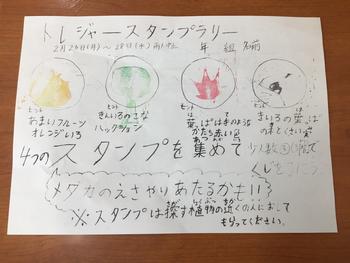 トレジャースタンプラリー
2月26日(月)〜28日(水) 年 組 名前
ヒント
あまいフルーツ
オレンジいろ
ヒント
きんいろのさな
ハックション
ヒント
葉っぱは手のような
かたち赤い色
きいろの葉っぱ
4つのスタンプを集めて
くじをひこう
メダカのえさやりあたるかも!!
※スタンプは探す植物の近くの人におして
もらってください。